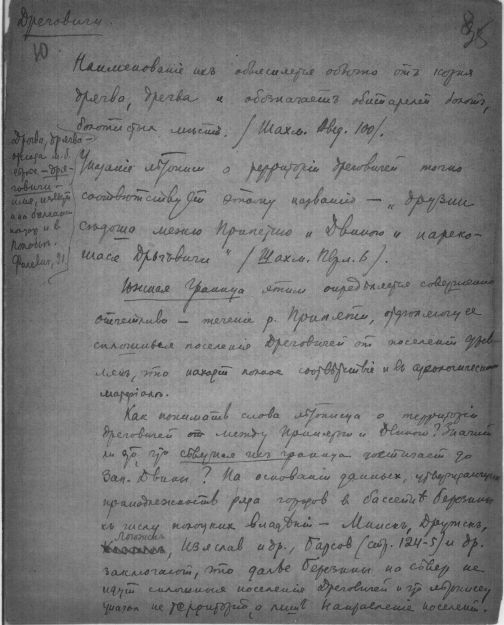 Дреговичи.
35
10
Наименованiе ихъ объясняется обычно отъ корня
дрягва, дрегва и обозначаетъ обитателей болотъ,
болотистыхъ мѣстъ. (Шахм. Введ. 100).
Дрягва, дрегва –
– дре-
говичи –
и на Балкан.
и въ
Филевич, 91.
Указанiе лѣтописи о территорiи дреговичей точно
соотвѣтствуетъ этому названiю – „друзии
сѣдоша межю Припетью и Двиною и нареко-
шася Дрьгъвичи" (Шахм. Пвл. 6).
Южная граница этимъ опредѣляется совершенно
отчетливо – теченiе р. Припяти, отдѣляющее
сплошныя поселенiя Дреговичей от поселенiй древ-
лянъ, что находитъ полное соотвѣтствiе и въ археологическомъ
матерiалѣ.
Какъ понимать слова лѣтописца о территорiи
дреговичей от между Припетью и Двиною? Значитъ
ли это, что сѣверная ихъ граница достигаетъ до
Зап. Двины? На основанiи данныхъ, утверждающихъ
принадлежность ряда городовъ в бассейнѣ Березины
къ числу полоцкихъ владѣнiй – Минскъ, Друцкъ,
Логожскъ
Изяслав и др., Барсов (стр. 124-5) и др.
заключаютъ, что далѣе Березины на сѣверъ не
идутъ сплошныя поселенiя Дреговичей и что лѣтописец
указал не территорiю, а лишь направленiе поселенiй.